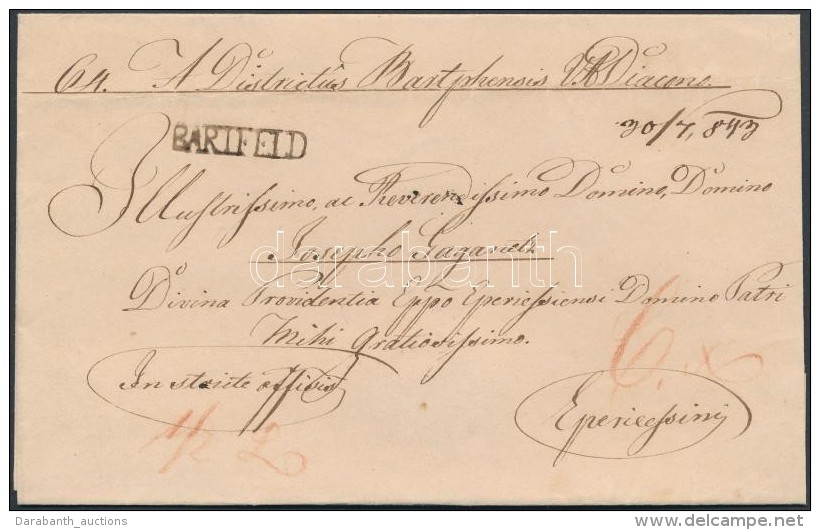 64. A Districtûs Bartphensis VA Diacono.
30/7, 843
BARTFELD
Illustrissimo, ac Reverendissimo Domino, Domino
Josepho Gaganetz
Divina Providentia Eppo Eperiessiensi Domino Patri
Mihi Gratiosissimo.
In stricte officiosis
Eperiessini
6 x
1/2 L
darabanth
Darabanth_auctions
www.delcampe.net